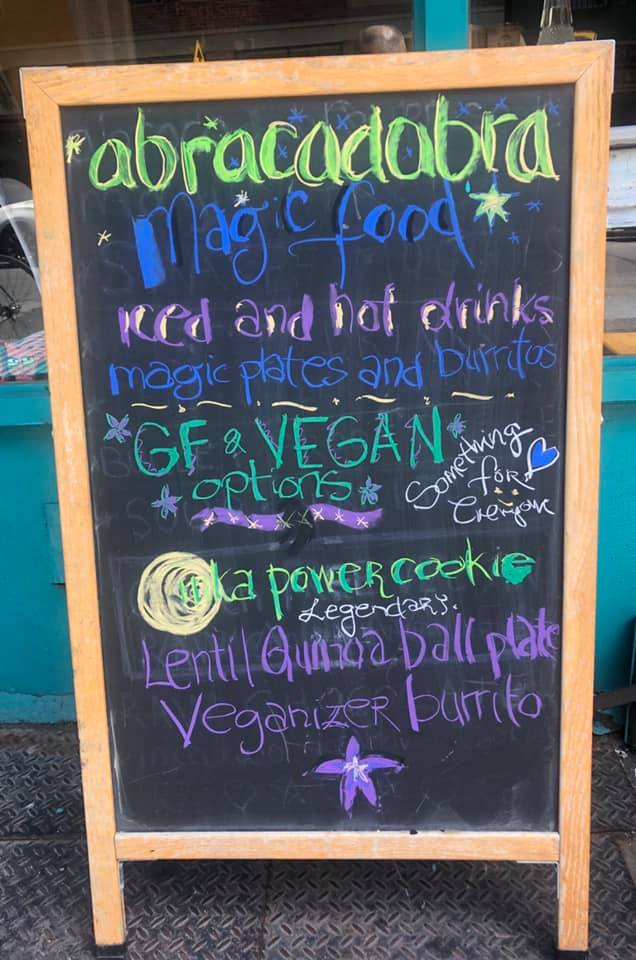 abracadabra
magic food
iced and hot drinks
magic plates and burritos
GF & VEGAN
options
Something
for
Everyone
power cookie
Legendary.
Lentil Quinoa ball plate
Veganizer burrito